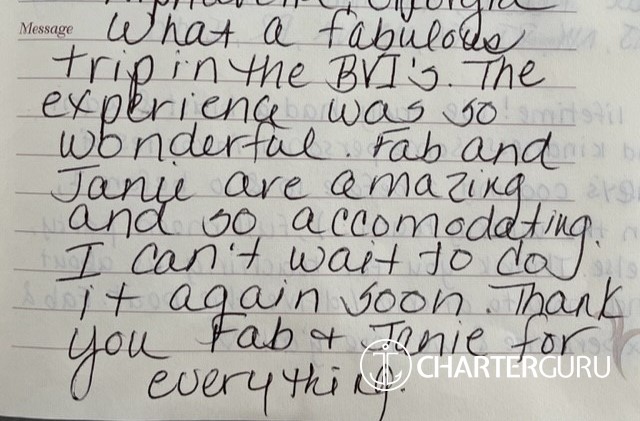 Alpharetta, Georgia
Message What a fabulous
trip in the BVI's. The
experience was so
wonderful. Fab and
Janie are amazing
and so accomodating.
I can't wait to do
it again soon. Thank
you Fab & Janie for
everything.
CHARTERGURU